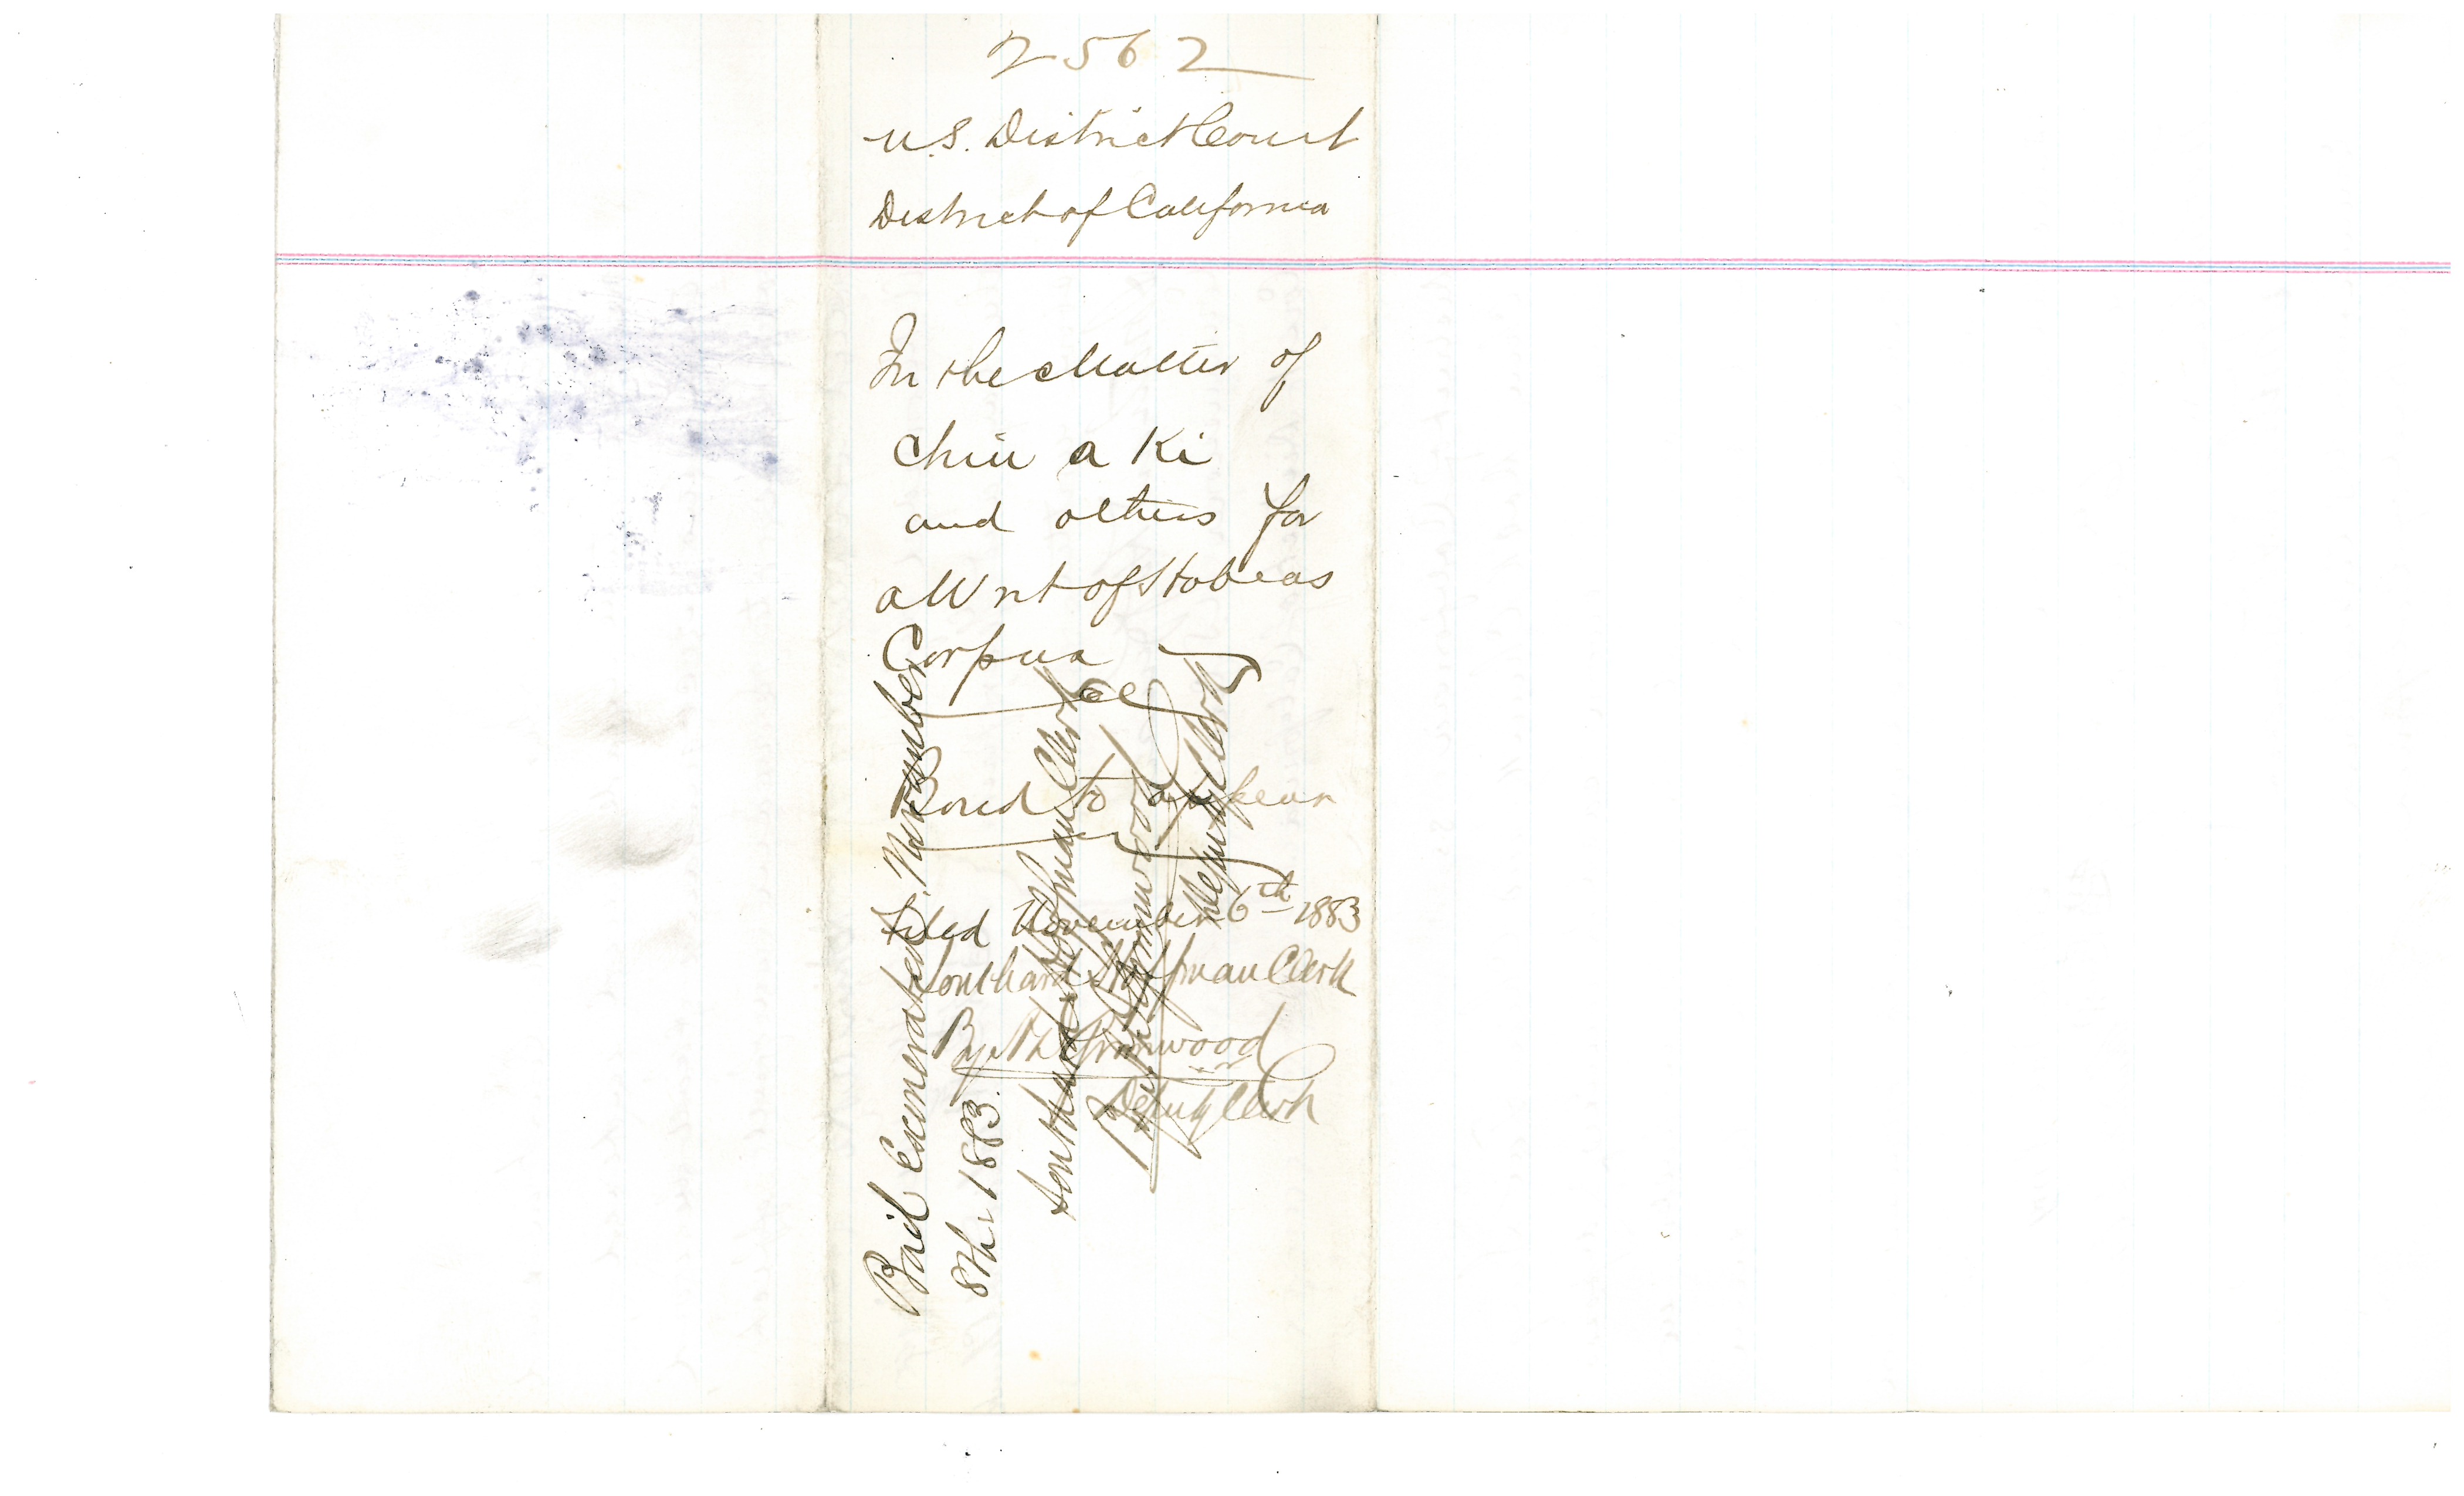 2562
U.S. District Court
District of California
In the Matter of
Chin a Ki
and others for
a Writ of Habeas
Corpus
Bond to appear
Filed November 6th 1883
Southard Hoffman Clerk
By
Deputy Clerk
Bail Exonerated November
8th 1883.
Southard Hoffman Clerk
By
Deputy Clerk